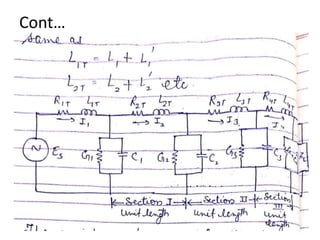 Cont...
Same as
L₁T = L₁ + L₁'
L₂T = L₂ + L₂' etc.
R₁T L₁T R₂T L₂T R₃T L₃T R₄T L₄T
→ I₁ → I₂ → I₃ → I₄
Es G₁ C₁ G₂ C₂ G₃ C₃
Section I Section II Section III
unit length unit length unit length